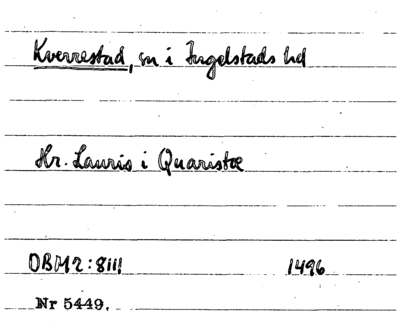 Kverrestad, sn i Ingelstads hd
Hr. Lauris i Quaristæ
DBM2:8111 1496
Nr 5449.